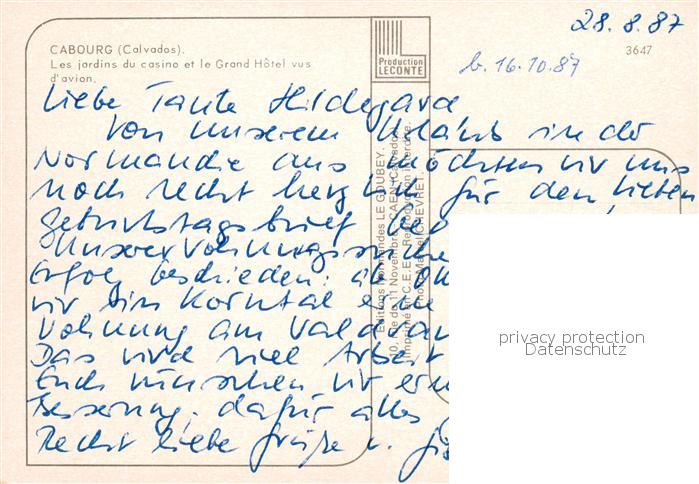 28.8.87
CABOURG (Calvados).
Les jardins du casino et le Grand Hôtel vus
d'avion.
Production
LECONTE
3647
b. 16.10.87
Liebe Tante Hildegard
Von unserem Urlaub in der
Normandie aus möchten wir uns
noch recht herzlich für den lieben
Geburtstagsbrief
Unserer Wohnungssuche
Erfolg beschieden: ab
wir in Korntal eine
Wohnung am Waldrand
Das wird viel Arbeit
Euch wünschen wir
Besserung, dafür alles
Recht liebe Grüße u.
Editions Normandes LE GOUBEY
11 Novembre CAEN (Calvados)
Imprimé en C.E.E.
privacy protection
Datenschutz